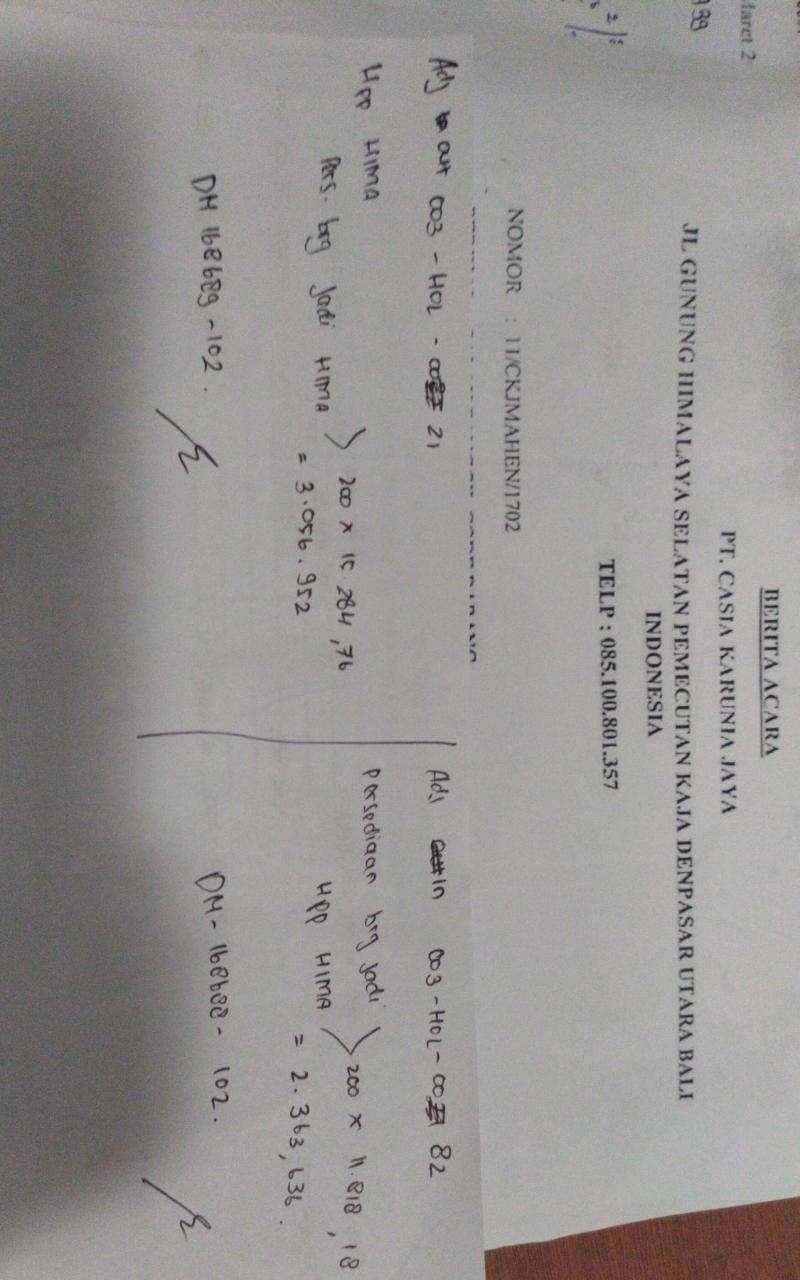 BERITA ACARA
PT. CASIA KARUNIA JAYA
JL GUNUNG HIMALAYA SELATAN PEMECUTAN KAJA DENPASAR UTARA BALI
INDONESIA
TELP : 085.100.801.357
NOMOR : 11/CKJMAHEN/1702
Maret 2
Adj out 003 - HOL - 21
HPP HIMA
Pers. brg jadi HIMA
200 x 15.284,76
= 3.056.952
DM 168689 - 102.
Adj in 003 - HOL - 00 82
Persediaan brg jadi
HPP HIMA
200 x 11.818,18
= 2.363,636.
DM - 168688 - 102.